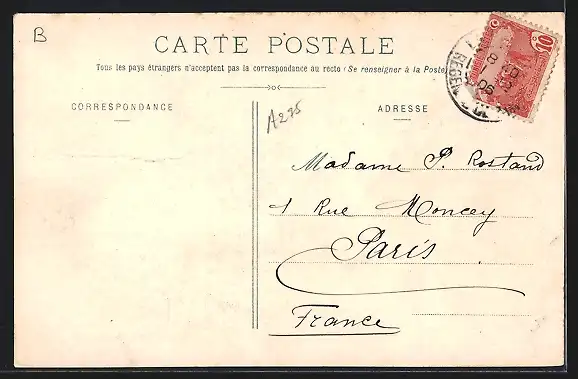 B
CARTE POSTALE
Tous les pays étrangers n'acceptent pas la correspondance au recto (Se renseigner à la Poste)
CORRESPONDANCE
A295
ADRESSE
10
Madame P. Rostand
1 Rue Moncey
Paris
France